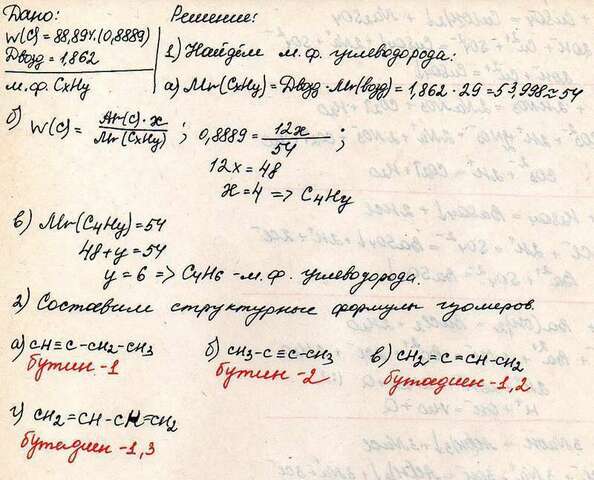 Дано:
W(C) = 88,89% (0,8889)
Dвозд = 1,862
м.ф. CxHy
Решение:
1) Найдём м.ф. углеводорода:
а) Mr(CxHy) = Dвозд · Mr(возд) = 1,862 · 29 = 53,998 ≈ 54
б) W(C) = Ar(C) · x / Mr(CxHy) ; 0,8889 = 12x / 54 ;
12x = 48
x = 4 => C4Hy
в) Mr(C4Hy) = 54
48 + y = 54
y = 6 => C4H6 - м.ф. углеводорода.
2) Составим структурные формулы изомеров.
а) CH≡C-CH2-CH3 б) CH3-C≡C-CH3 в) CH2=C=CH-CH2
бутин-1 бутин-2 бутадиен-1,2
г) CH2=CH-CH=CH2
бутадиен-1,3